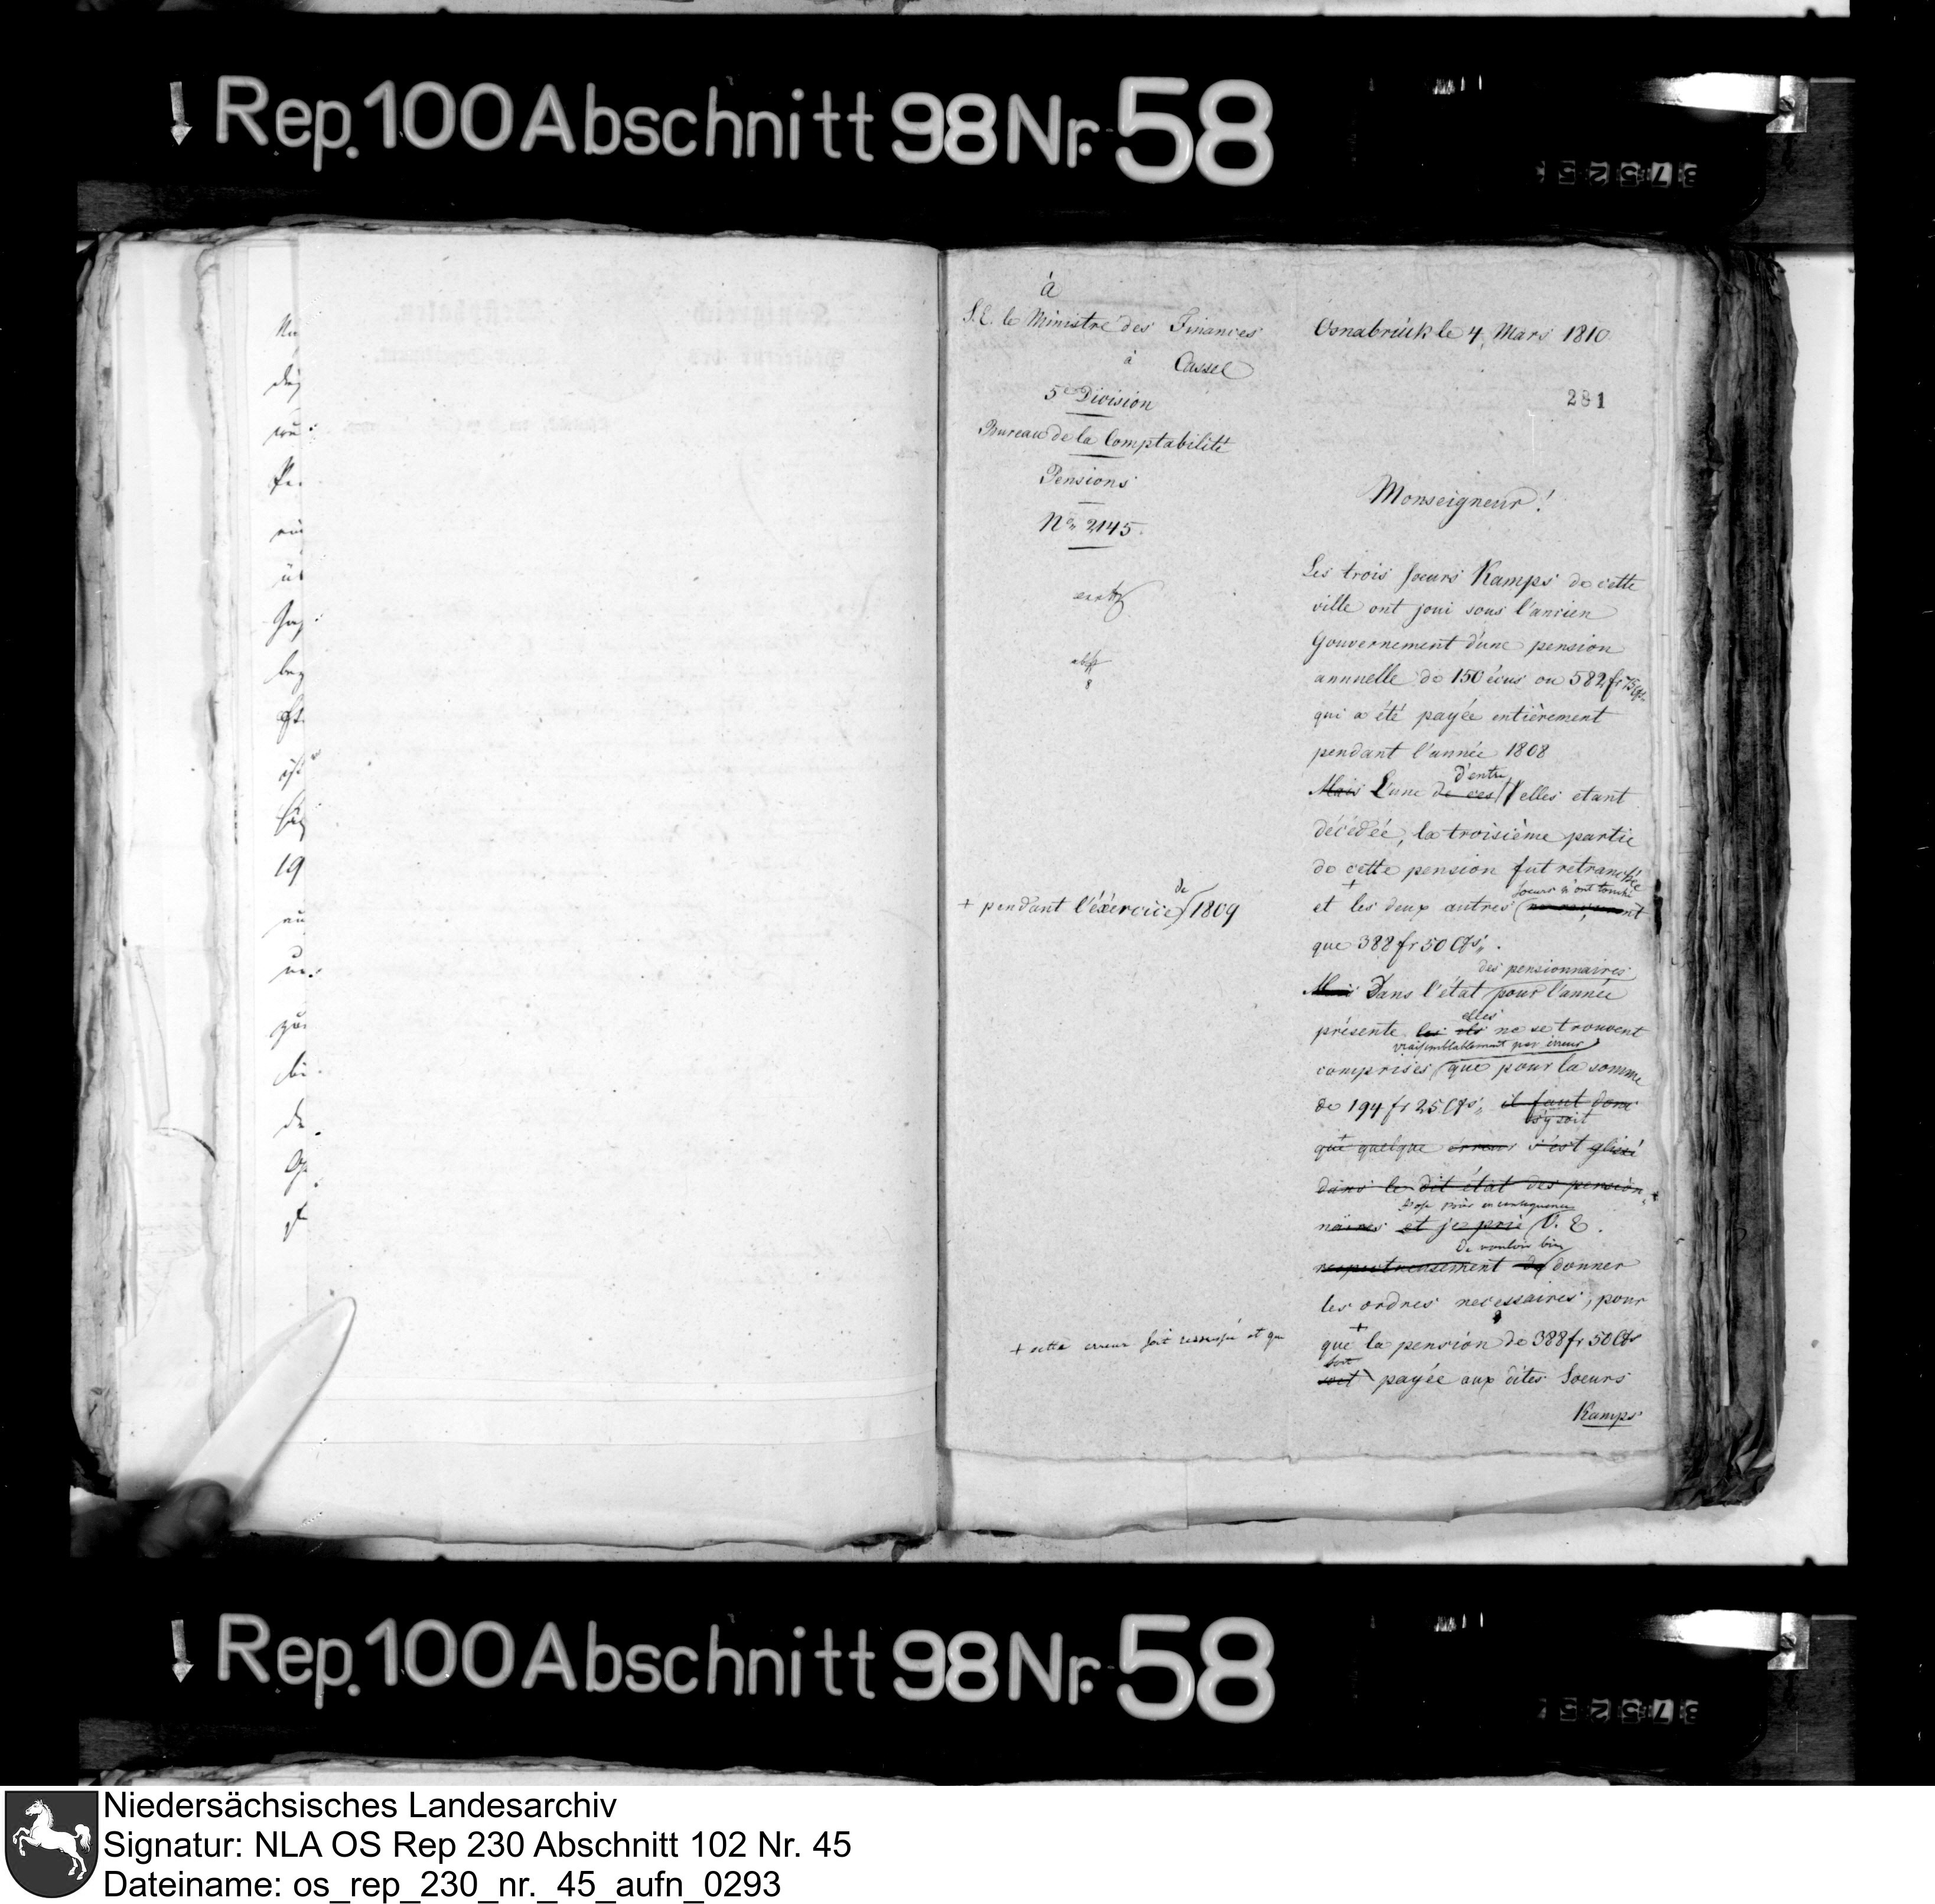 Rep. 100 Abschnitt 98 Nr. 58
à
S. E. le Ministre des Finances
à Cassel
5e Division
Bureau de la Comptabilité
Pensions
No 2145.
Osnabrück le 4 Mars 1810
281
Monseigneur!
Les trois soeurs Kamps de cette
ville ont joui sous l'ancien
Gouvernement d'une pension
annuelle de 150 écus ou 582 fr 75 Cts
qui a été payée entièrement
pendant l'année 1808
d'entre
Mais L'une de ces elles etant
décédée, la troisième partie
de cette pension fut retranchée
+ soeurs n'ont touché
et les deux autres
+ pendant l'éxercice de 1809
que 388 fr 50 Cts.
des pensionnaires
Mais Dans l'état pour l'année
elles
présente les ils ne se trouvent
vraisemblablement par erreur
comprises que pour la somme
de 194 fr 25 Cts, il faut donc
s'y soit
que quelque erreur s'est glissé
dans le dit état des pension-
naires et je prie V. E.
de vouloir bien
respectueusement de donner
les ordres necessaires, pour
+
que la pension de 388 fr 50 Cts
+ cette erreur soit et que
soit
soit payée aux dites Soeurs
Kamps
19
Rep. 100 Abschnitt 98 Nr. 58
Niedersächsisches Landesarchiv
Signatur: NLA OS Rep 230 Abschnitt 102 Nr. 45
Dateiname: os_rep_230_nr._45_aufn_0293